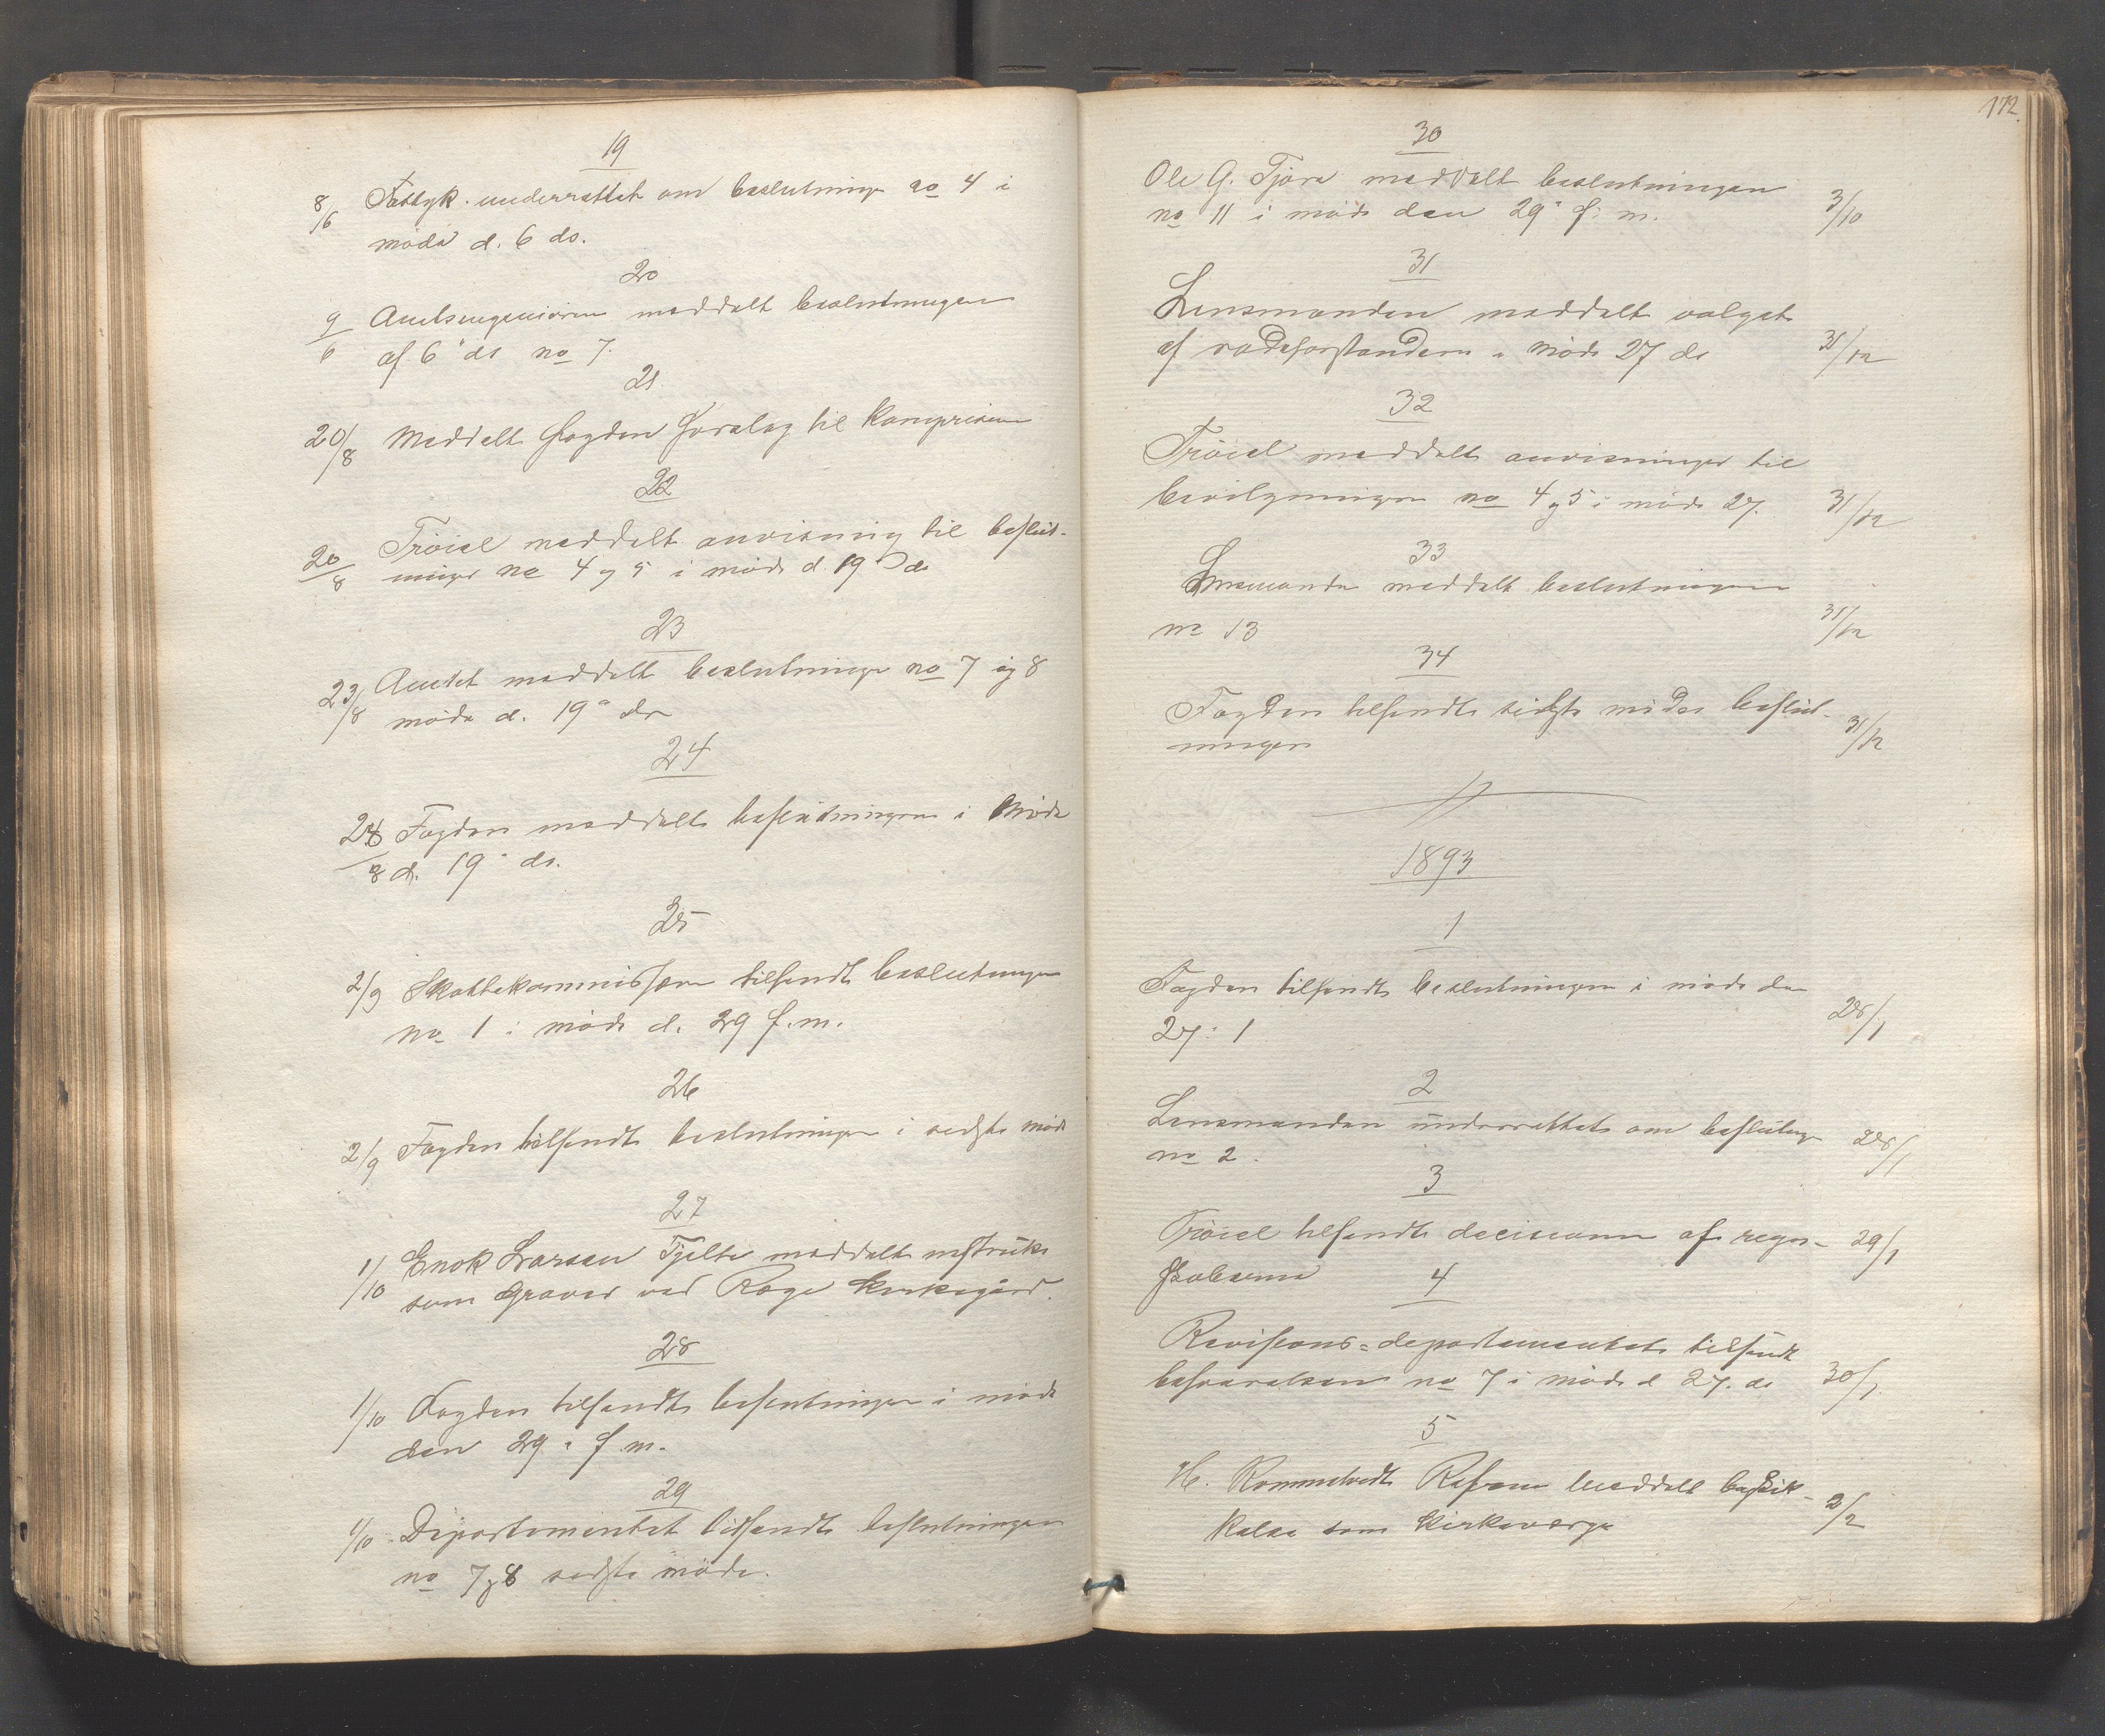 19
8/6 Fattgk. underrettet om beslutninge no 4 i
møde d. 6 ds.
20
9/6 Amtsingeniøren meddelt beslutningen
af 6" ds no 7.
21
20/8 Meddelt Fogden Forslag til
22
20/8 Trøiel meddelt anvisning til beslut-
ninger no 4 og 5 i møde d. 19 ds
23
23/8 Amtet meddelt beslutninge no 7 og 8
møde d. 19" ds
24
24/8 Fogden meddelt beslutningerne i Møde
d. 19" ds.
25
2/9 Skattekommissæren tilsendt beslutningen
no 1 i møde d. 29 f.m.
26
2/9 Fogden tilsendt beslutninger i sidste møde
27
1/10 Enok Larsen Tjelta meddelt instruks
som graver ved Røge kirkegård.
28
1/10 Fogden tilsendt beslutninger i møde
den 29" f.m.
29
1/10 Departementet tilsendt beslutningen
no 7 og 8 sidste møde.
172.
30
Ole G. Tjøra meddelt beslutningen
no 11 i møde den 29" f.m. 3/10
31
Lensmanden meddelt valget
af rodeforstandere i møde 27 ds 31/12
32
Trøiel meddelt anvisninger til
bevilgningen no 4 og 5 i møde 27. 31/12
33
Lensmanden meddelt beslutningen
no 13 31/12
34
Fogden tilsendt sidste mødes beslut-
ninger 31/12
1893
1
Fogden tilsendt beslutningen i møde den
27: 1 28/1
2
Lensmanden underrettet om beslutng
no 2. 28/1
3
Trøiel tilsendt decisionen af regn-
skaberne 29/1
4
Revisions-departementet tilsendt
besvarelsen no 7 i møde d 27. ds 30/1
5
H. Rommetvedt meddelt beskik-
kelse som kirkeverge 2/2